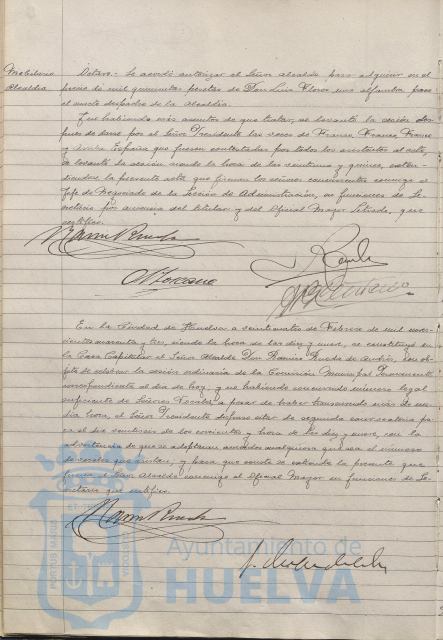 Mobiliario
Alcaldía
Octavo.- Se acordó autorizar al Señor alcalde para adquirir en el
precio de mil quinientas pesetas de Don Luis Flores una alfombra para
el nuevo despacho de la alcaldía.
Y no habiendo más asuntos de que tratar, se levantó la sesión des-
pues de darse por el Señor Presidente las voces de Franco, Franco, Franco
y Arriba España que fueron contestadas por todos los asistentes al acto,
se levantó la sesión siendo la hora de las veintiuna y quince, exten-
diendose la presente acta que firman los señores concurrentes conmigo el
Jefe de Negociado de la Sección de Administración, en funciones de Se-
cretario por ausencia del titular y del Oficial Mayor Letrado, que
certifico.
En la Ciudad de Huelva a veinticuatro de Febrero de mil nove-
cientos cuarenta y tres, siendo la hora de las diez y nueve, se constituyó en
la Casa Capitular el Señor Alcalde Don Ramiro Rueda de Andrés, con ob-
jeto de celebrar la sesión ordinaria de la Comisión Municipal Permanente
correspondiente al día de hoy, y no habiendo concurrido número legal
suficiente de Señores Vocales a pesar de haber transcurrido más de me-
dia hora, el Señor Presidente dispuso citar de segunda convocatoria pa-
ra el día veintiseis de los corrientes y hora de las diez y nueve, con la
advertencia de que se adoptarán acuerdos cualquiera que sea el número
de vocales que asistan, y para que conste se extiende la presente que
firma el Señor Alcalde conmigo el Oficial Mayor en funciones de Se-
cretario que certifico.
Ayuntamiento de
HUELVA
PORTUS MARIS